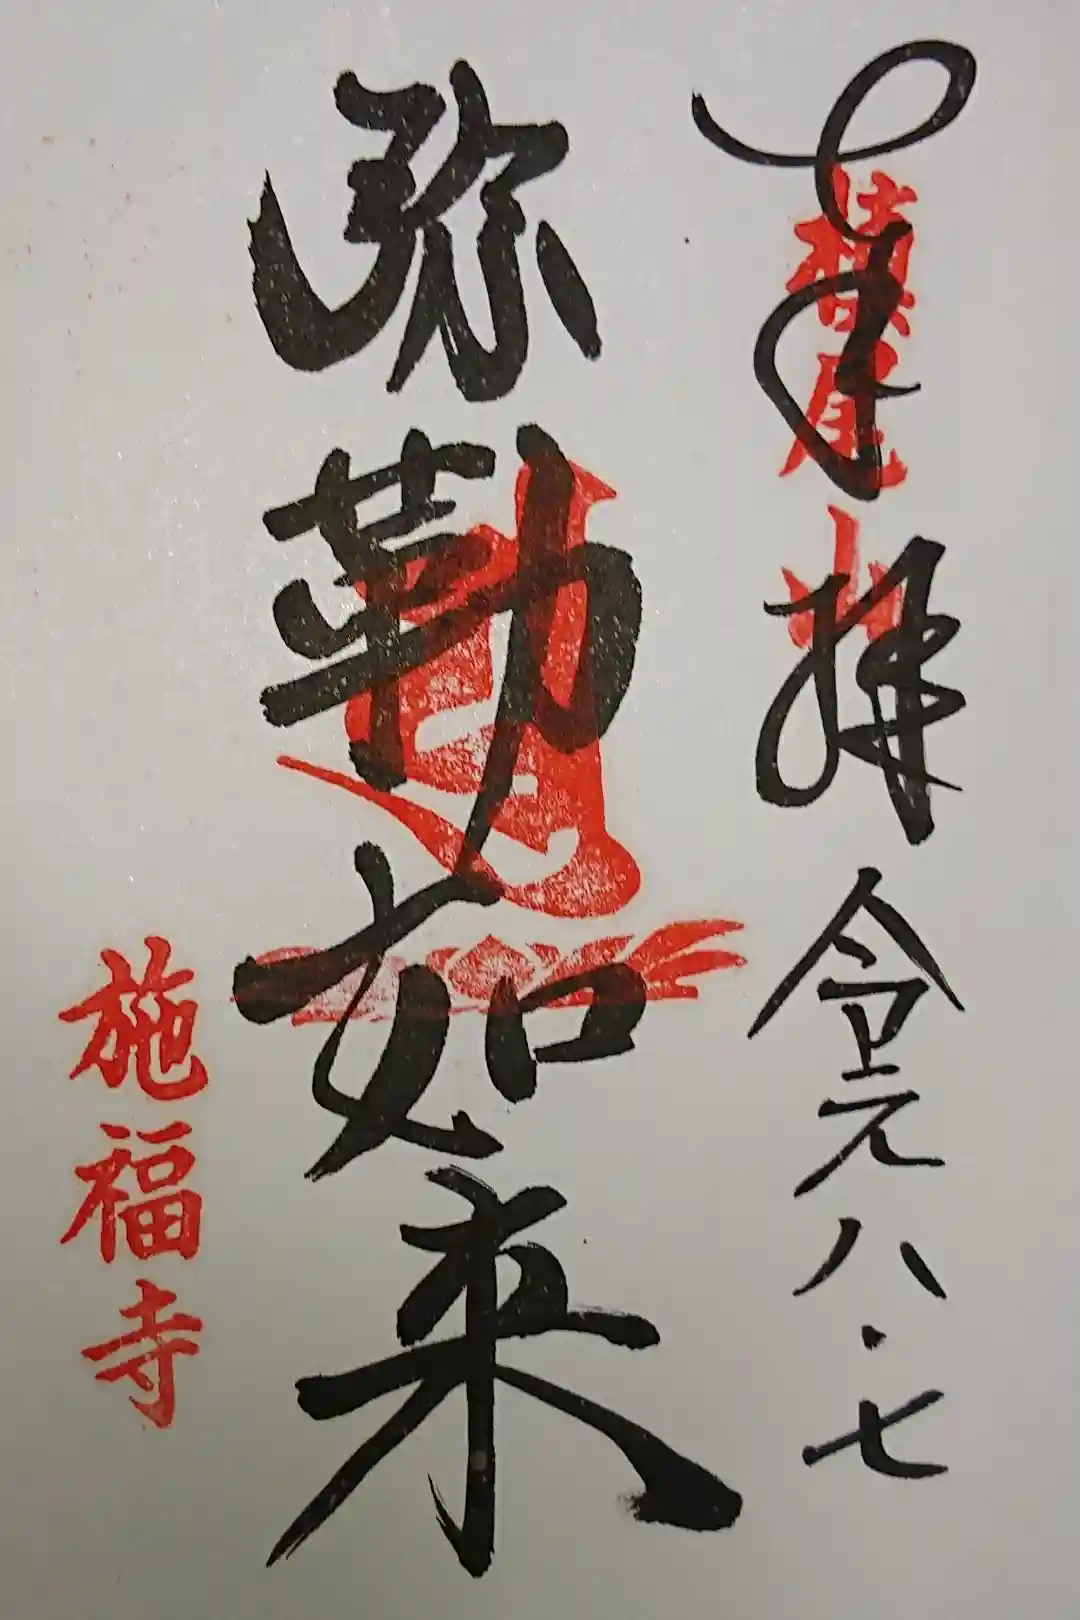 奉拝 令元 八・七
槇尾山
弥勒如来
施福寺